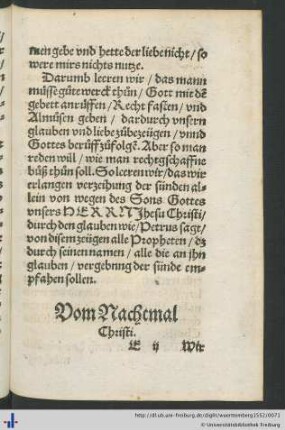 men gebe vnd hette der liebe nicht / so
were mirs nichts nutze.
Darumb leeren wir / das mann
müsse gůte werck thůn / Gott mit dē
gebett anrůffen / Recht fasten / vnd
Almůsen geben / dardurch vnsern
glauben vnd liebe zůbezeügen / vnnd
Gottes berůff zůfolgē. Aber so man
reden will / wie man rechtgschaffne
bůß thůn soll. So leeren wir / das wir
erlangen verzeihung der sünden al-
lein von wegen des Sons Gottes
vnsers HERRN Jhesu Christi /
durch den glauben wie / Petrus sagt /
von disem zeügen alle Propheten / dz
durch seinen namen / alle die an jhn
glauben / vergebung der sünde em-
pfahen sollen.
Vom Nachtmal
Christi.
E ij Wir
http://dl.ub.uni-freiburg.de/diglit/wuerttemberg1552/0071
© Universitätsbibliothek Freiburg